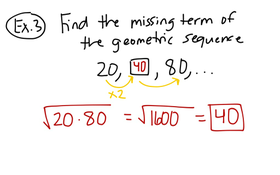 Ex.3 Find the missing term of
the geometric sequence
20, 40, 80, ...
×2
√20·80 = √1600 = 40